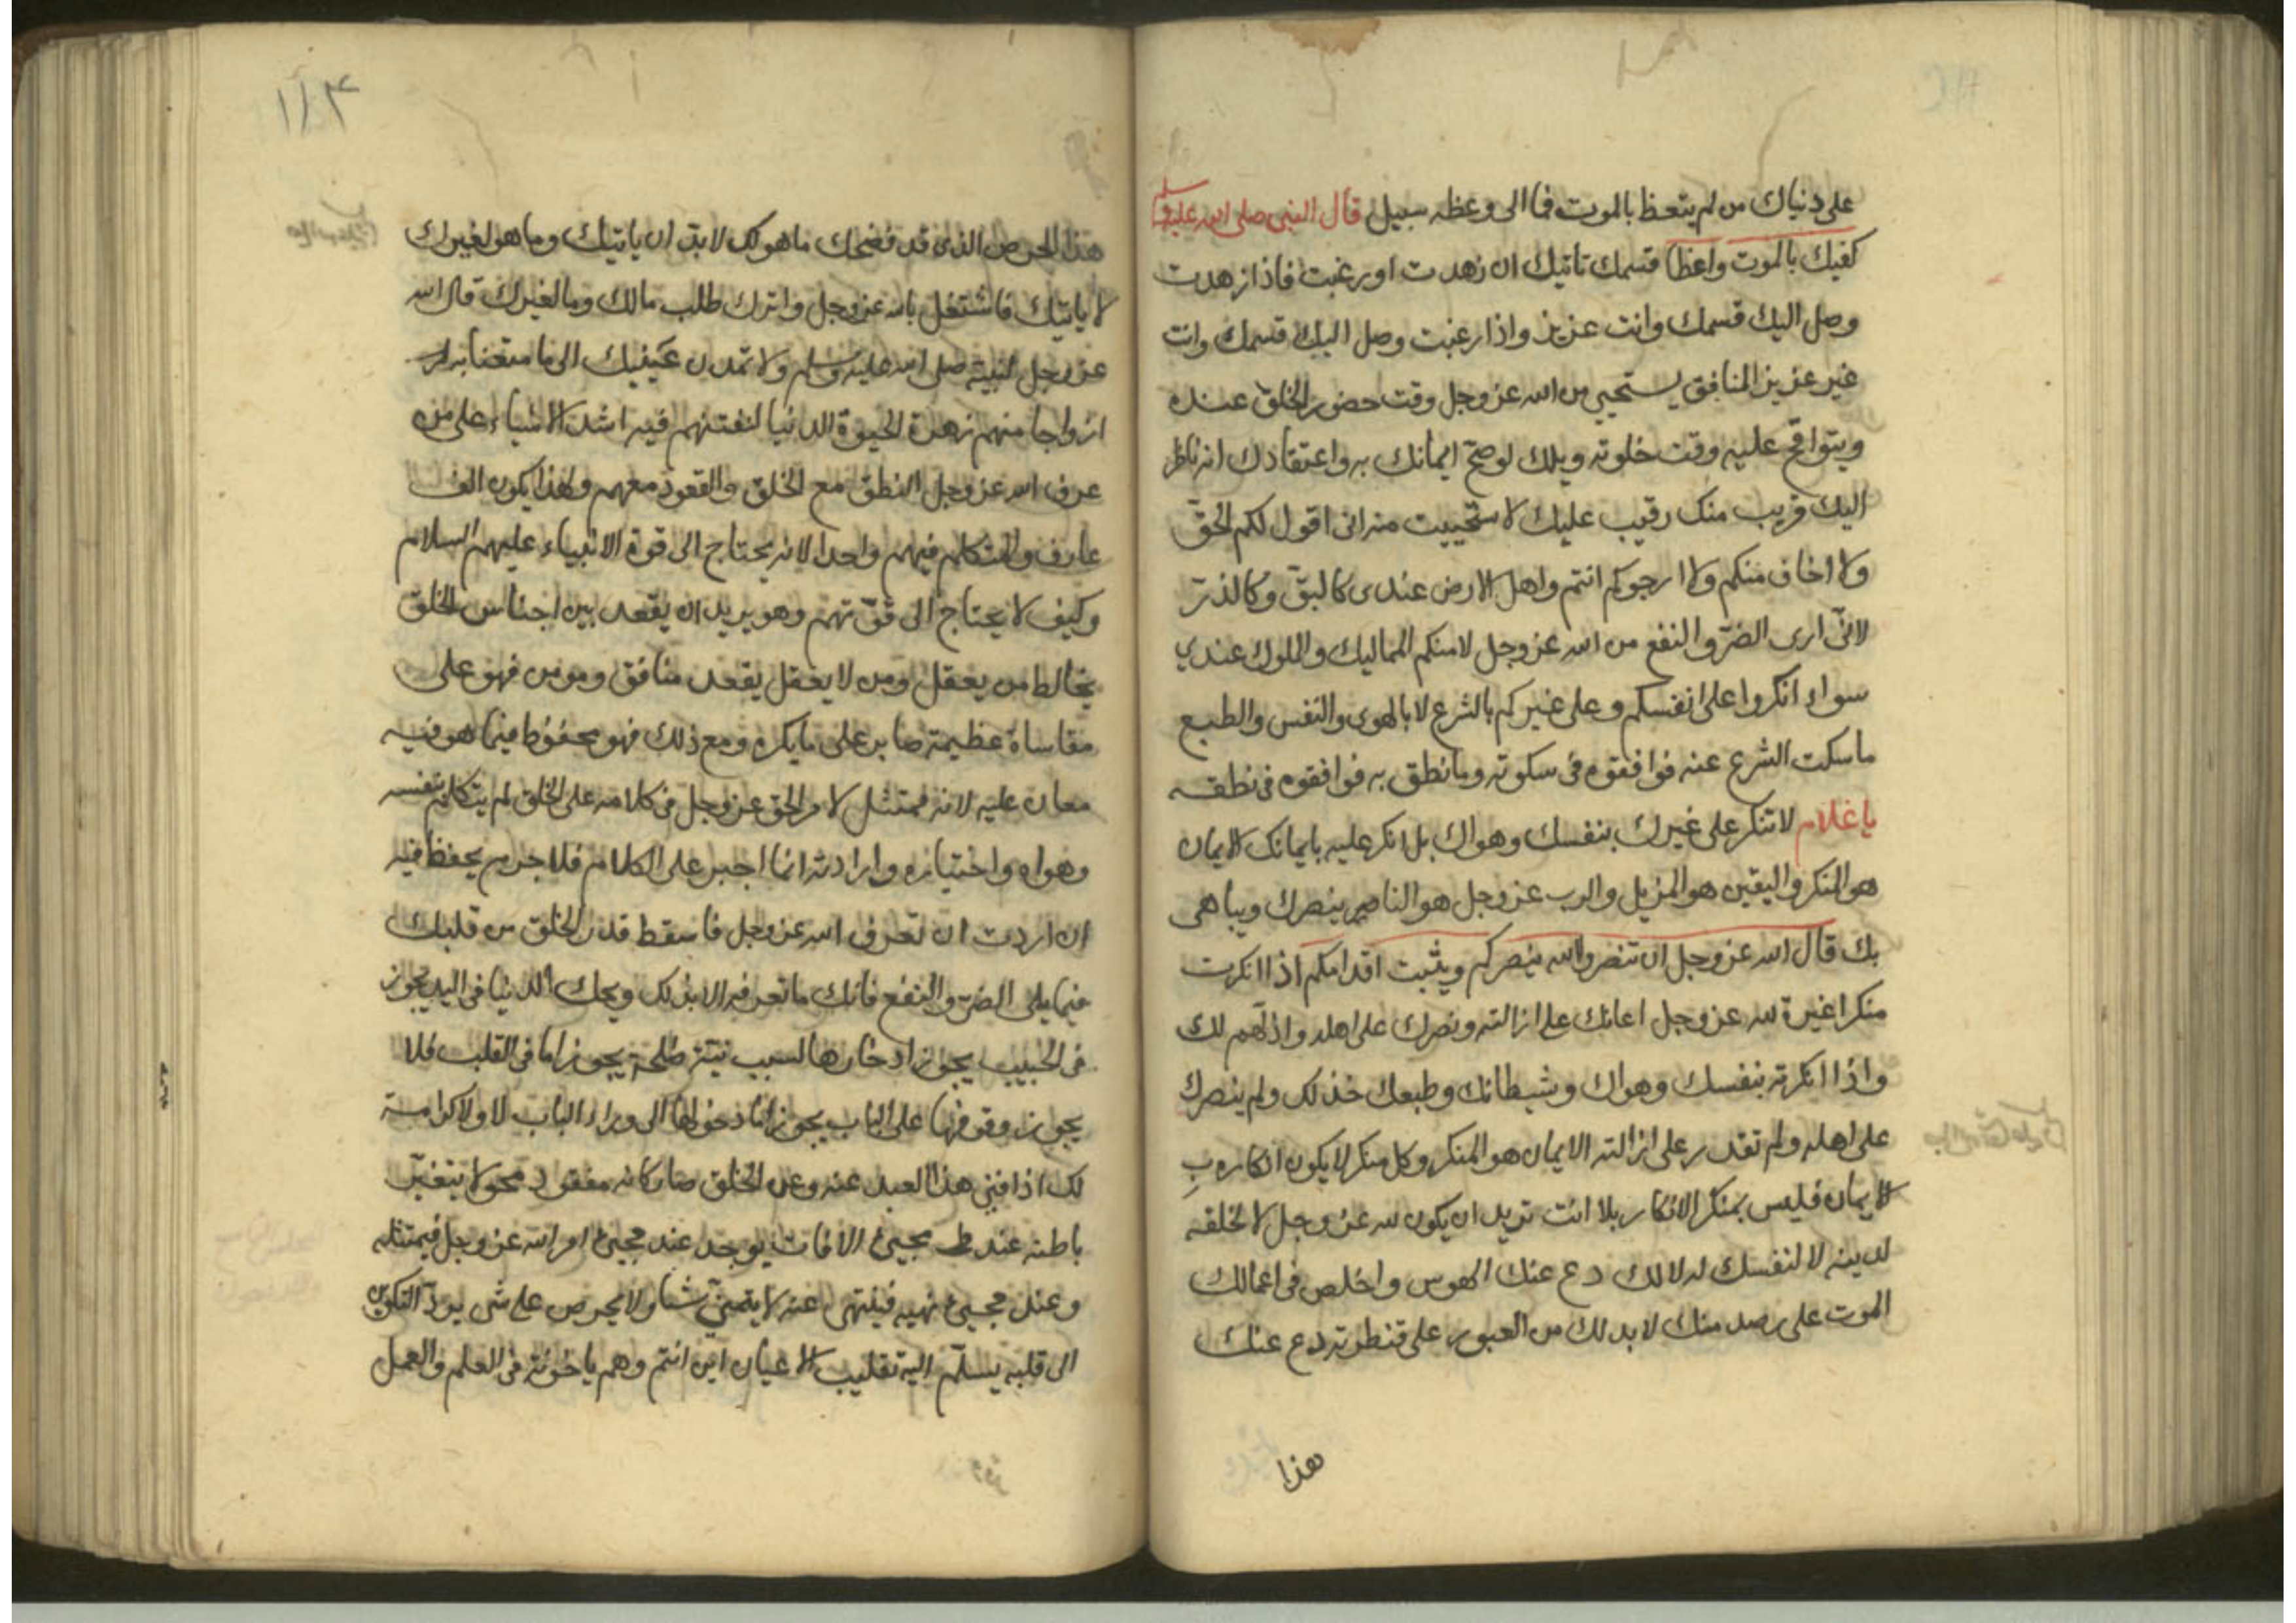 على دنياك من لم يتعظ بالموت فما الى وعظه سبيل قال النبى صلى الله عليه وسلم
كفيك بالموت واعظا قسمك تاتيك ان زهدت او رغبت فاذا زهدت
وصل اليك قسمك وانت عزيز واذا رغبت وصل اليك قسمك وانت
غير عزيز المنافق يستحيي من الله عز وجل وقت حضور الخلق عنده
ويتواقح عليه وقت خلوته ويلك لو صح ايمانك به واعتقادك انه ناظر
اليك قريب منك رقيب عليك لاستحييت منه انى اقول لكم الحق
ولا اخاف منكم ولا ارجوكم انتم واهل الارض عندى كالبق وكالذر
لانى ارى الضر والنفع من الله عز وجل لا منكم المماليك والملوك عندي
سواء انكروا على انفسكم وعلى غيركم بالشرع لا بالهوى والنفس والطبع
ما سكت الشرع عنه فوافقوه فى سكوته وما نطق به فوافقوه فى نطقه
يا غلام لا تنكر على غيرك بنفسك وهواك بل انكر عليه بايمانك الايمان
هو المنكر واليقين هو المزيل والرب عز وجل هو الناصر ينصرك ويباهى
بك قال الله عز وجل ان تنصروا الله ينصركم ويثبت اقدامكم اذا انكرت
منكرا غيرة لله عز وجل اعانك على ازالته ونصرك على اهله واذلهم لك
واذا انكرته بنفسك وهواك وشيطانك وطبعك خذلك ولم ينصرك
على اهله ولم تقدر على ازالته الايمان هو المنكر وكل منكر لا يكون انكاره ب
الايمان فليس بمنكر الانكار بلا انت تريد ان يكون لله عز وجل لا لخلقه
لدينه لا لنفسك له لا لك دع عنك الهوس واخلص فى اعمالك
الموت على رصد منك لابد لك من العبور على قنطرته دع عنك
هذا
١٨٣
هذا الحرص الذى قد فضحك ما هو لك لابد ان ياتيك وما هو لغيرك
لا ياتيك فاشتغل بالله عز وجل واترك طلب مالك وما لغيرك قال الله
عز وجل لنبيه صلى الله عليه وسلم ولا تمدن عينيك الى ما متعنا به
ازواجا منهم زهرة الحيوة الدنيا لنفتنهم فيه اشد الاشياء على من
عرف الله عز وجل النطق مع الخلق والقعود معهم ولهذا يكون الف
عارف والمتكلم فيهم واحدا لانه يحتاج الى قوة الانبياء عليهم السلام
وكيف لا يحتاج الى قوتهم وهو يريد ان يقعد بين اجناس الخلق
يخالط من يعقل ومن لا يعقل يقعد منافق ومومن فهو على
مقاساة عظيمة صابر على ما يكره ومع ذلك فهو محفوظ فيما هو فيه
معان عليه لانه ممتثل لامر الحق عز وجل فى كلامه على الخلق لم يتكلم بنفسه
وهواه واختياره وارادته انما اجبر على الكلام فلا جرم يحفظ فيه
ان اردت ان تعرف الله عز وجل فاسقط قدر الخلق من قلبك
فيما يلى الضر والنفع فانك ما تعرفه الا بذلك ويحك الدنيا فى اليد يجوز
فى الجيب يجوز ادخارها لسبب نية صالحة يجوز اما فى القلب فلا
يجوز وقوفها على الباب يجوز اما دخولها الى وراء الباب لا ولا كرامة
لك اذا فنى هذا العبد عنه وعن الخلق صار كانه مفقود محو لا يتغير
باطنه عند مجيئ الافات يوجد عند مجيئ امر الله عز وجل فيمتثله
وعند مجيئ نهيه فينتهى عنه لا يتمنى شيا ولا يحرص على شى يرد التكوين
الى قلبه يسلم اليه تقليب الاعيان اين انتم وهم ياخوته فى العلم والعمل